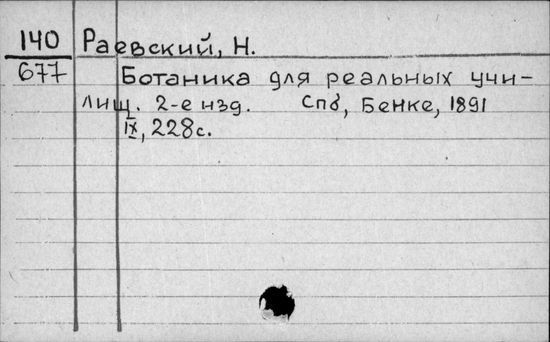 140 Раевский, Н.
677 Ботаника для реальных учи-
лищ. 2-е изд. Спб, Бенке, 1891
IX, 228с.